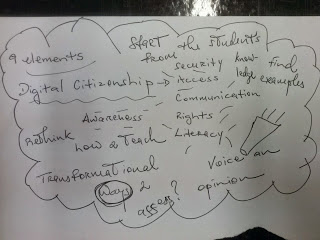 9 elements
START from the students
security
know-
ledge
find
examples
Digital Citizenship → Access
Communication
Awareness
Rights
Rethink how a teach
Literacy
Transformational
Voice an
opinion
Ways 2
assess?